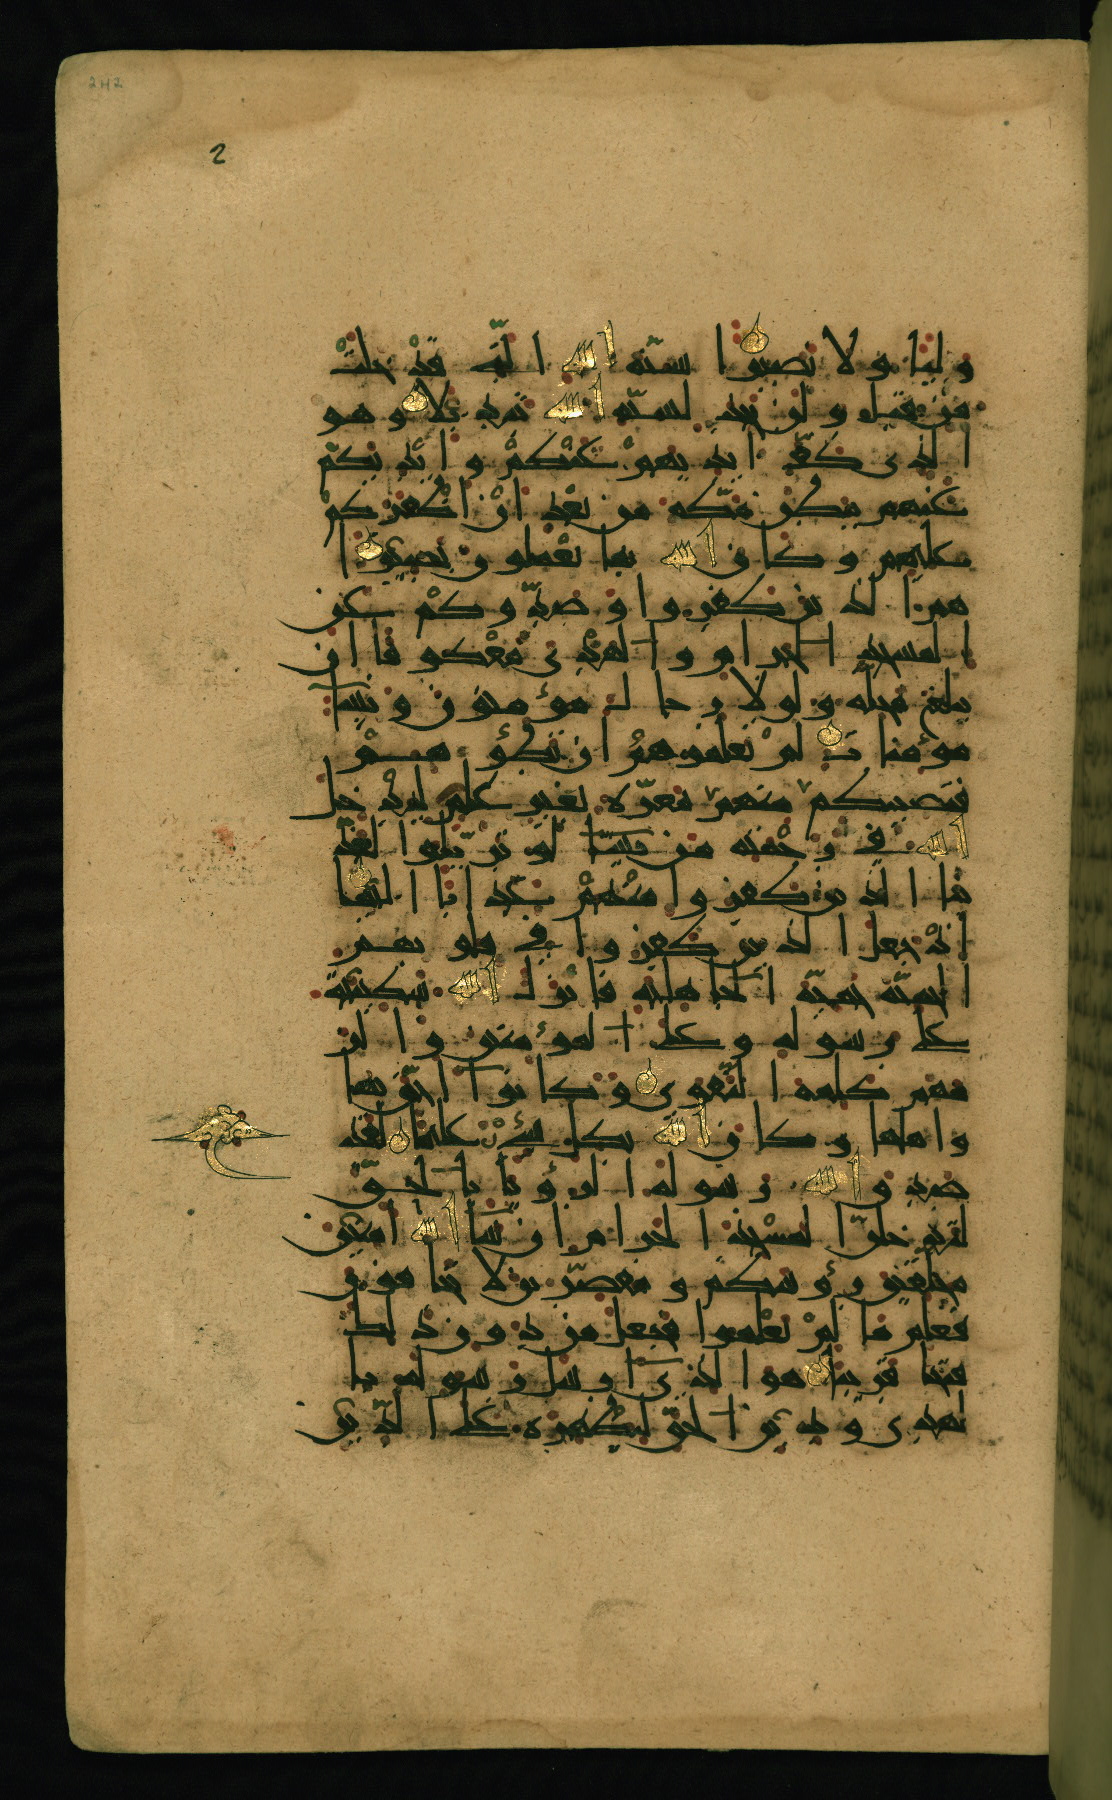 242
2
وليا ولا نصيرا سنة الله التى قد خلت
من قبل ولن تجد لسنة الله تبديلا وهو
الذى كف ايديهم عنكم وايديكم
عنهم ببطن مكة من بعد ان اظفركم
عليهم وكان الله بما تعملون بصيرا
هم الذين كفروا وصدوكم عن
المسجد الحرام والهدى معكوفا ان
يبلغ محله ولولا رجال مؤمنون ونسآ
مؤمنات لم تعلموهم ان تطؤهم
فتصيبكم منهم معرة بغير علم ليدخل
الله فى رحمته من يشآ لو تزيلوا لعذ
بنا الذين كفروا منهم عذابا اليما
اذ جعل الذين كفروا فى قلوبهم
الحمية حمية الجاهلية فانزل الله سكينته
على رسوله وعلى المؤمنين والز
مهم كلمة التقوى وكانوآ احق بها
واهلها وكان الله بكل شىء عليما لقد
صدق الله رسوله الرؤيا بالحق
لتدخلن المسجد الحرام ان شآ الله آمنين
محلقين رؤوسكم ومقصرين لا تخافون
فعلم ما لم تعلموا فجعل من دون ذلك
فتحا قريبا هو الذىآ ارسل رسوله با
لهدى ودين الحق ليظهره على الدين